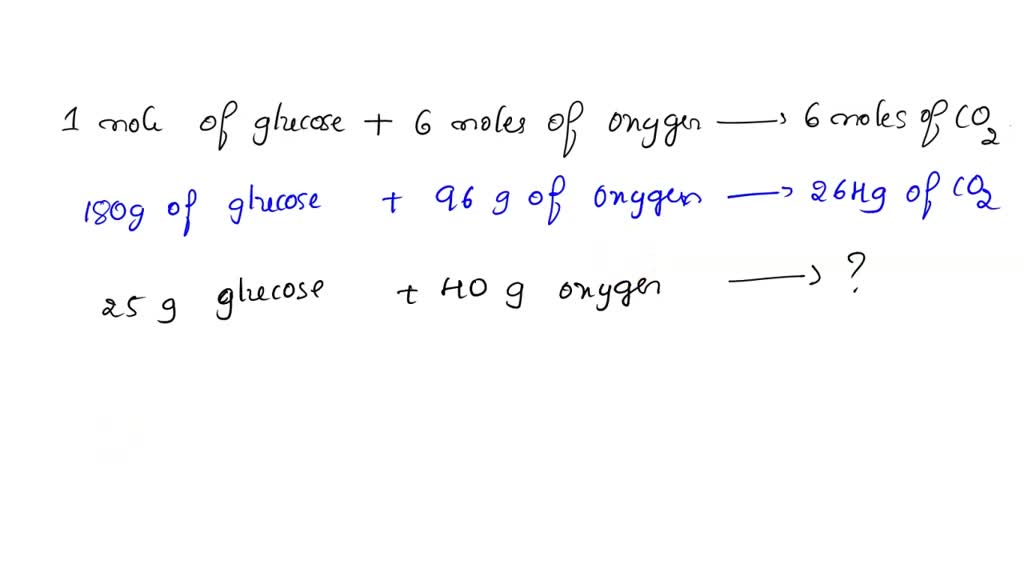 1 mole of glucose + 6 moles of oxygen → 6 moles of CO2
180g of glucose + 96 g of oxygen → 264g of CO2
25 g glucose + 40 g oxygen → ?